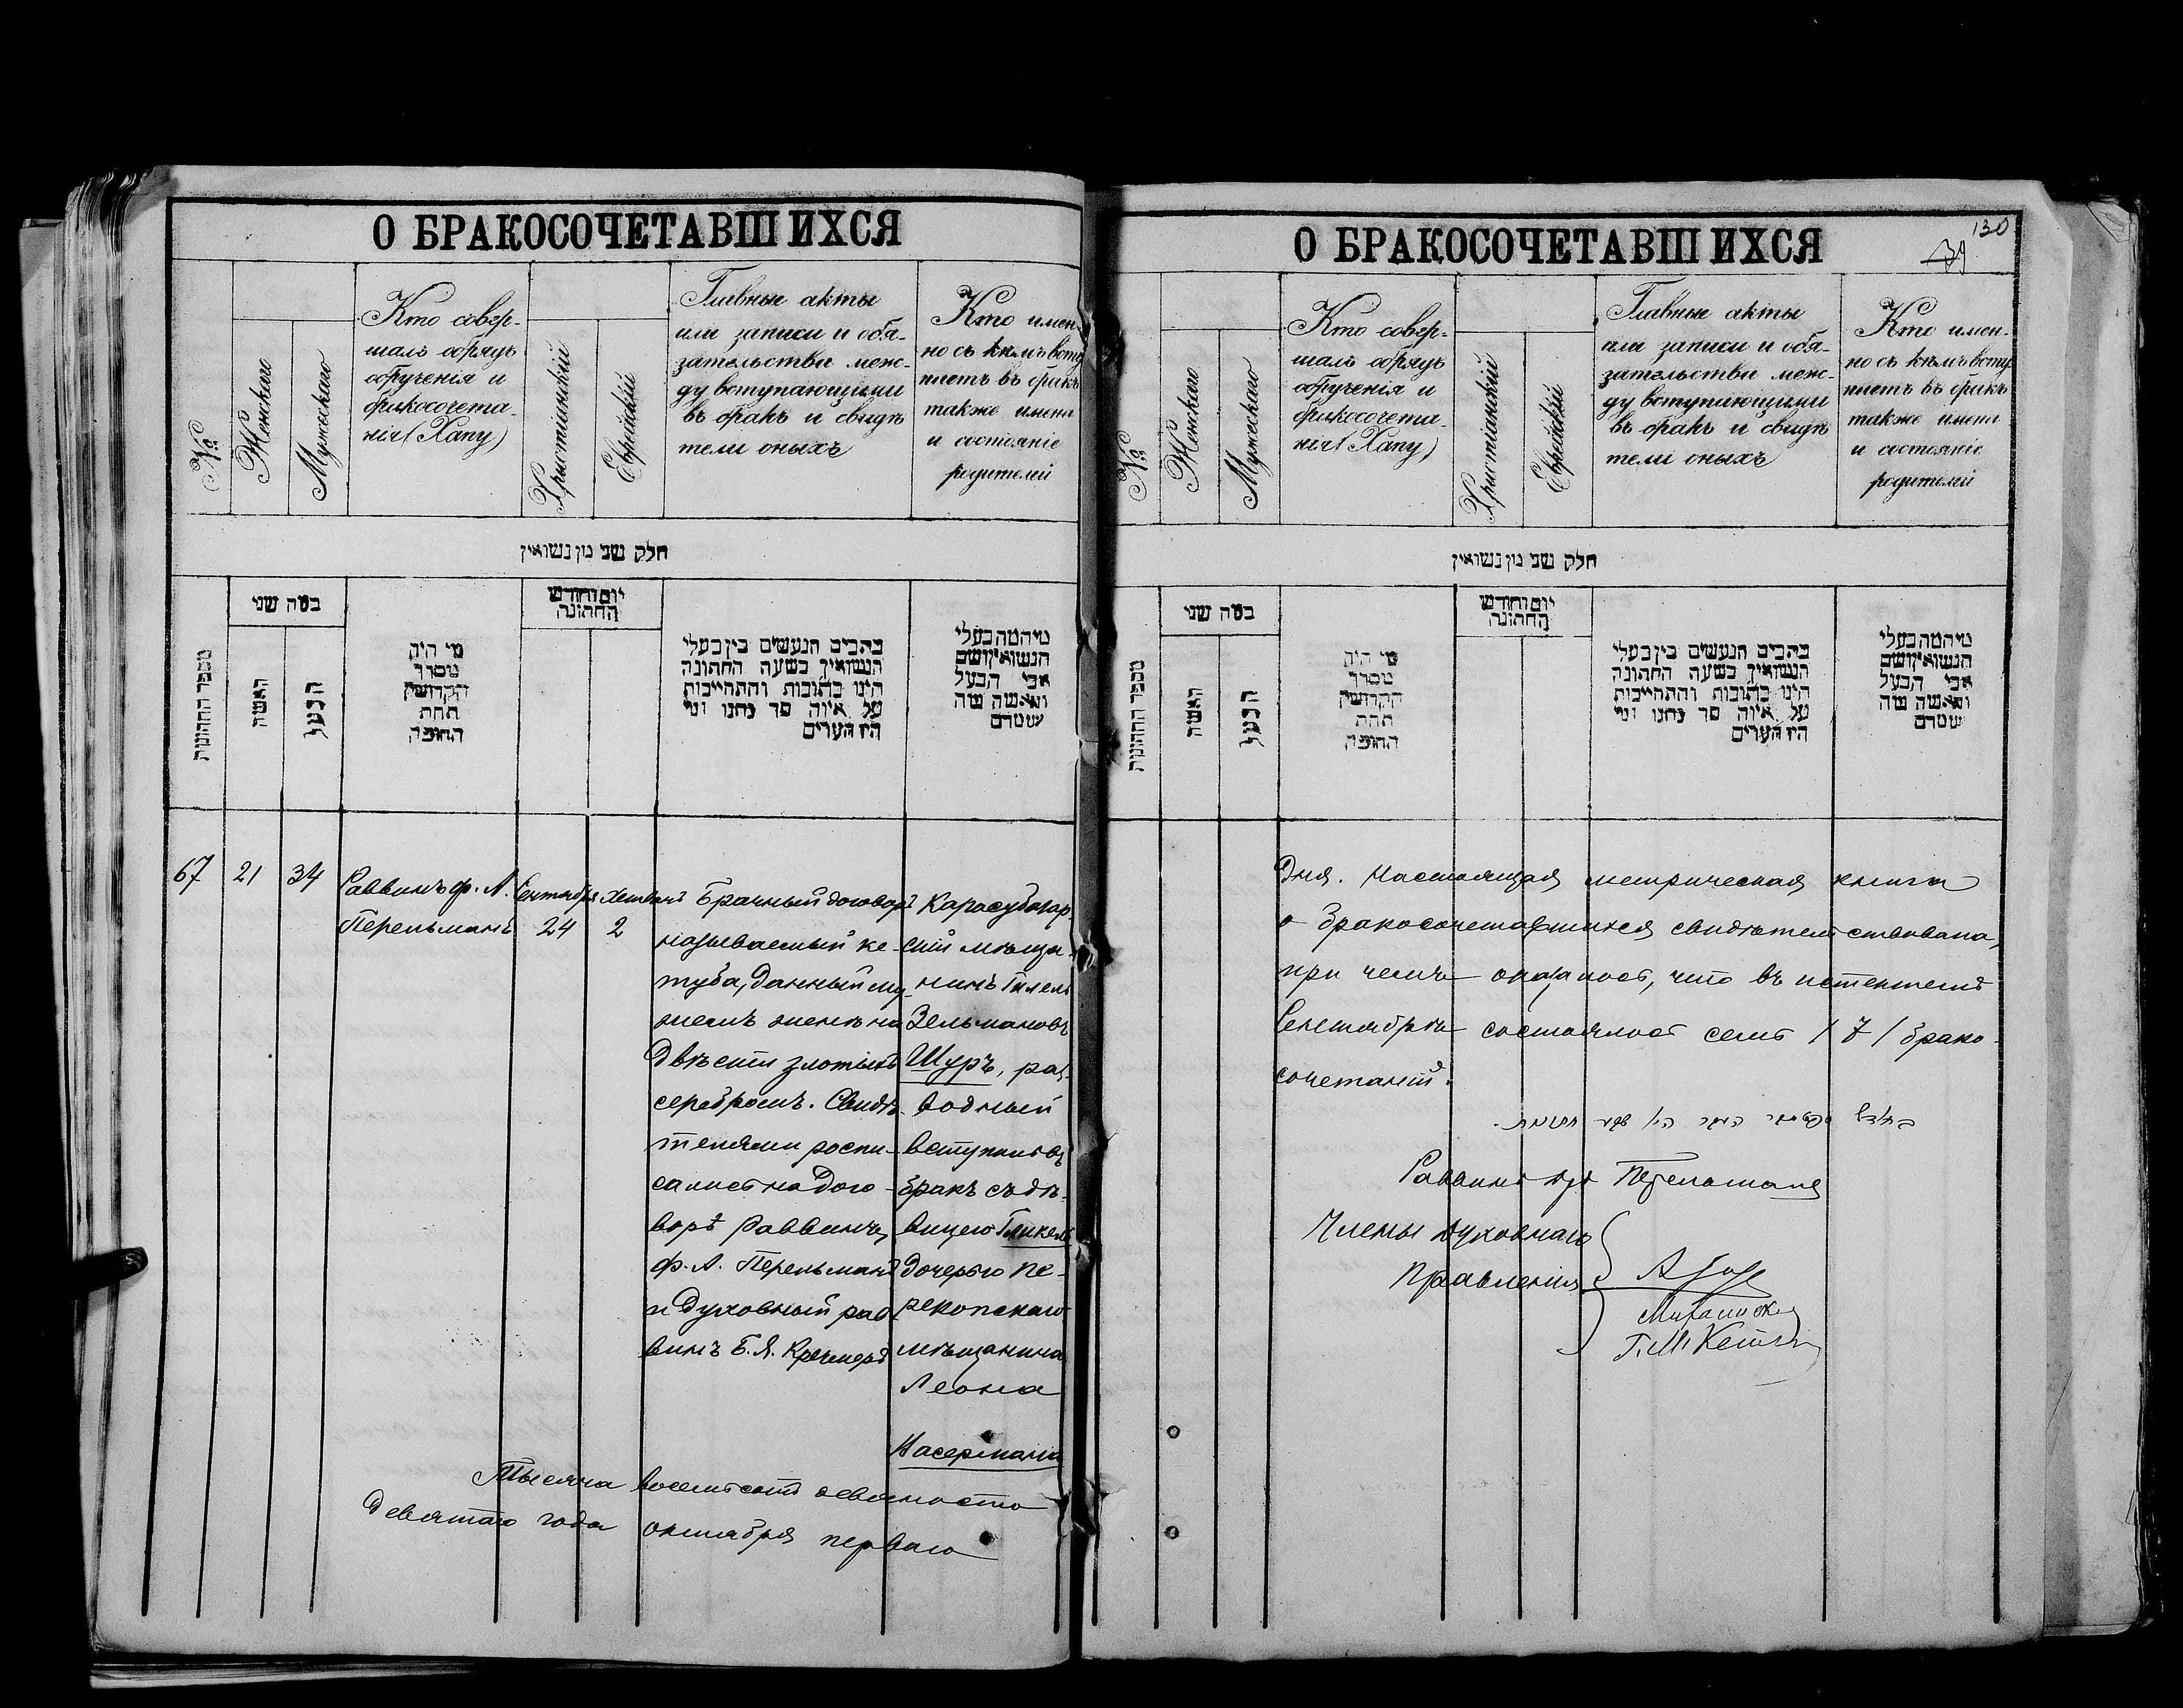 О БРАКОСОЧЕТАВШИХСЯ
№
Женскаго
Мужескаго
Кто совер-
шалъ обрядъ
обрученія и
бракосочета-
нія (Хапу)
Христіанскій
Еврейскій
Главные акты
или записи и обя-
зательства меж-
ду вступающими
въ бракъ и свидѣ
тели оныхъ
Кто имен-
но съ кѣмъ всту
паетъ въ бракъ
также имена
и состояніе
родителей
חלק שני מן נשואין
מספר החתונות
במה שני
האשה
הבעל
מי היה
מסדר
הקדושין
תחת
החופה
יום וחודש
החתונה
כתבים הנעשים בין בעלי
הנשואין בשעה החתונה
היינו כתובות והתחייבות
על איזה סך נתנו ומי
היו העדים
הנשואין ושם
אבי הבעל
67
21
34
Раввинъ ф. Л.
Перельманъ
Сентября
24
Хешванъ
2
Брачный договоръ
называемый ке-
туба, данный му-
жемъ женѣ на
двѣсти злотыхъ
серебромъ. Свидѣ-
телями роспи-
сались на дого-
ворѣ Раввинъ
ф. Л. Перельманъ
и духовный рав
винъ Б. Я. Кречмеръ
Карасубазар-
скій мѣща-
нинъ Гилель
Зельмановъ
Шуръ, раз-
водный
вступилъ въ
бракъ съ дѣ-
вицею Гликель
дочерью Пе-
рекопскаго
мѣщанина
Леона
Насермана
Тысяча восемьсотъ девяносто
девятаго года октября перваго
О БРАКОСОЧЕТАВШИХСЯ
130
№
Женскаго
Мужескаго
Кто совер-
шалъ обрядъ
обрученія и
бракосочета-
нія (Хапу)
Христіанскій
Еврейскій
Главные акты
или записи и обя-
зательства меж-
ду вступающими
въ бракъ и свидѣ
тели оныхъ
Кто имен-
но съ кѣмъ всту
паетъ въ бракъ
также имена
и состояніе
родителей
חלק שני מן נשואין
מספר החתונות
במה שני
האשה
הבעל
מי היה
מסדר
הקדושין
תחת
החופה
יום וחודש
החתונה
כתבים הנעשים בין בעלי
הנשואין בשעה החתונה
היינו כתובות והתחייבות
על איזה סך נתנו ומי
היו העדים
הנשואין ושם
אבי הבעל
дня. Настоящая метрическая книга
о бракосочетавшихся свидѣтельствована,
при чемъ оказалось, что въ истекшемъ
Сентябрѣ состоялось семь / 7 / брако-
сочетаній.
Раввинъ Перельманъ
Члены духовнаго
Правленія